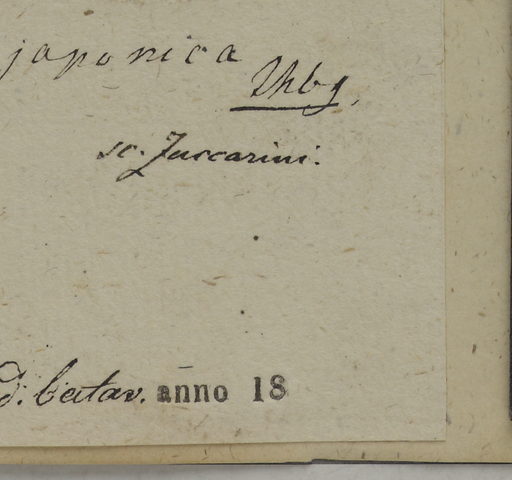 japonica
Thbg,
sc. Zuccarini.
d. batav. anno 18